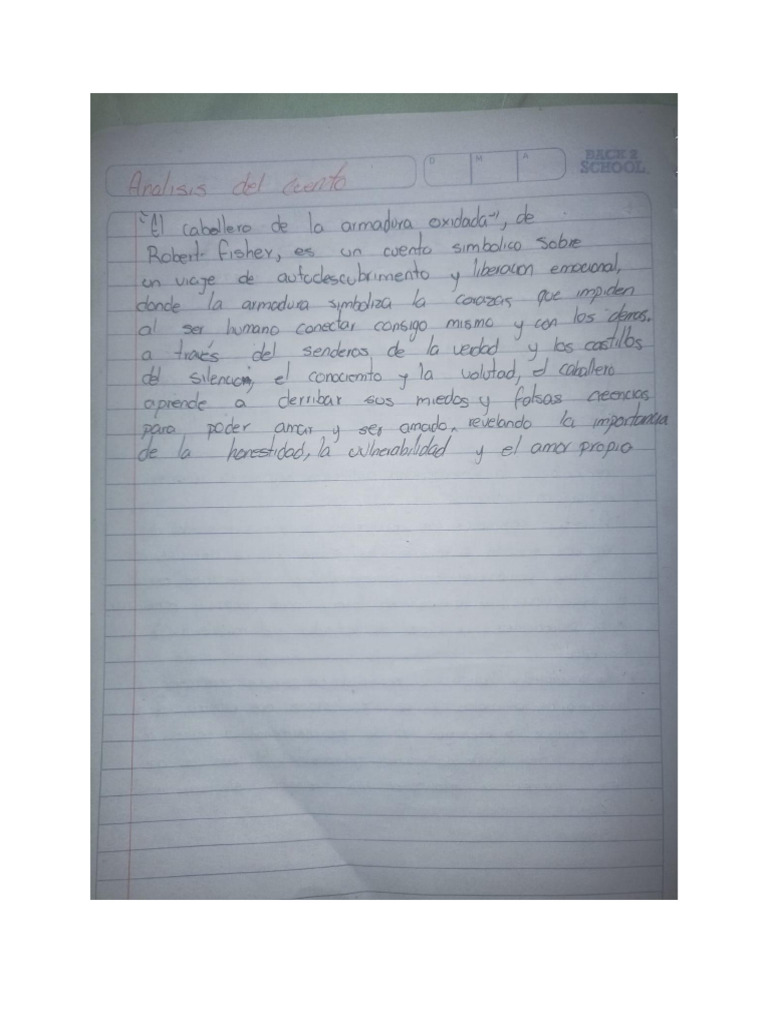 D M A
BACK 2
SCHOOL
Analisis del cuento
"El caballero de la armadura oxidada", de
Robert Fisher, es un cuento simbolico sobre
un viaje de autodescubrimento y liberacion emocional,
donde la armadura simboliza la corazas que impiden
al ser humano conectar consigo mismo y con los demas.
a través del senderos de la verdad y los castillos
del silencion, el conociento y la volutad, el caballero
aprende a derribar sus miedos y falsas creencias
para poder amar y ser amado, revelando la importancia
de la honestidad, la vulnerabilidad y el amor propio